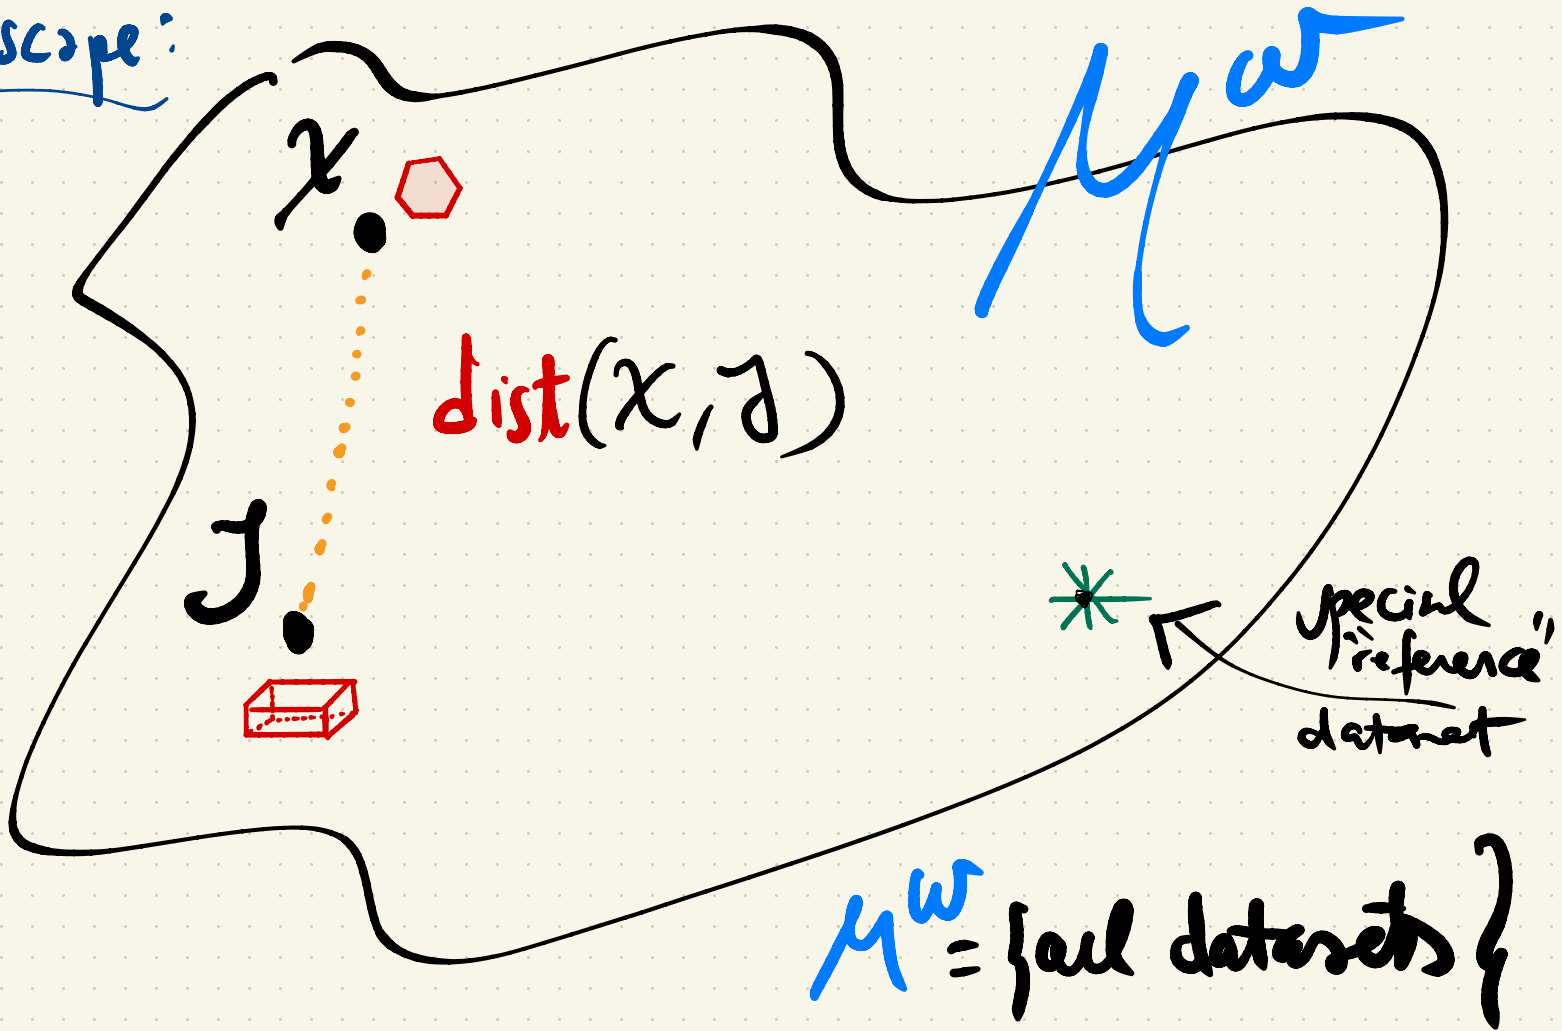 scape:
M^w
X
dist(X, Y)
Y
special
"reference"
dataset
M^w = {all datasets}